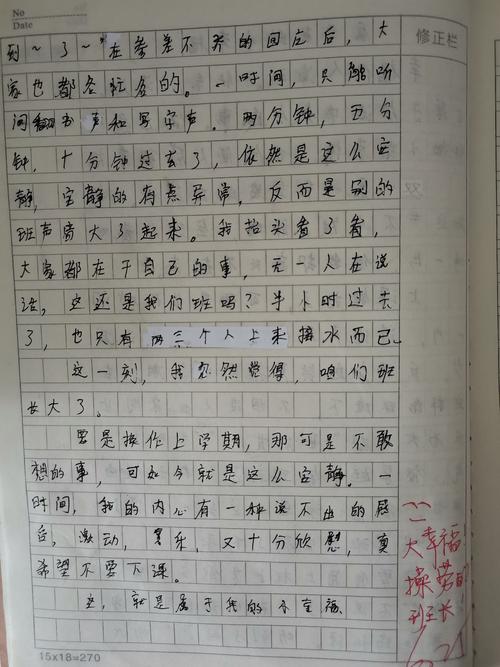 No
Date
修正栏
到～了～"在参差不齐的回应后，大
家也都各忙各的。一时间，只能听
间翻书声和写字声。两分钟，五分
钟，十分钟过去了，依然是这么安
静，安静的有点异常，反而是别的
班声音大了起来。我抬头看了看，
大家都在干自己的事，无一人在说
话，这还是我们班吗？半小时过去
了，也只有两三个人上来接水而已。
这一刻，我忽然觉得，咱们班
长大了。
要是换作上学期，那可是不敢
想的事，可如今就是这么安静。一
时间，我的内心有一种说不出的感
台，激动，喜乐，又十分欣慰，真
希望不要下课。
这，就是属于我的小幸福
大幸福！
操劳的
班长！
15x18=270